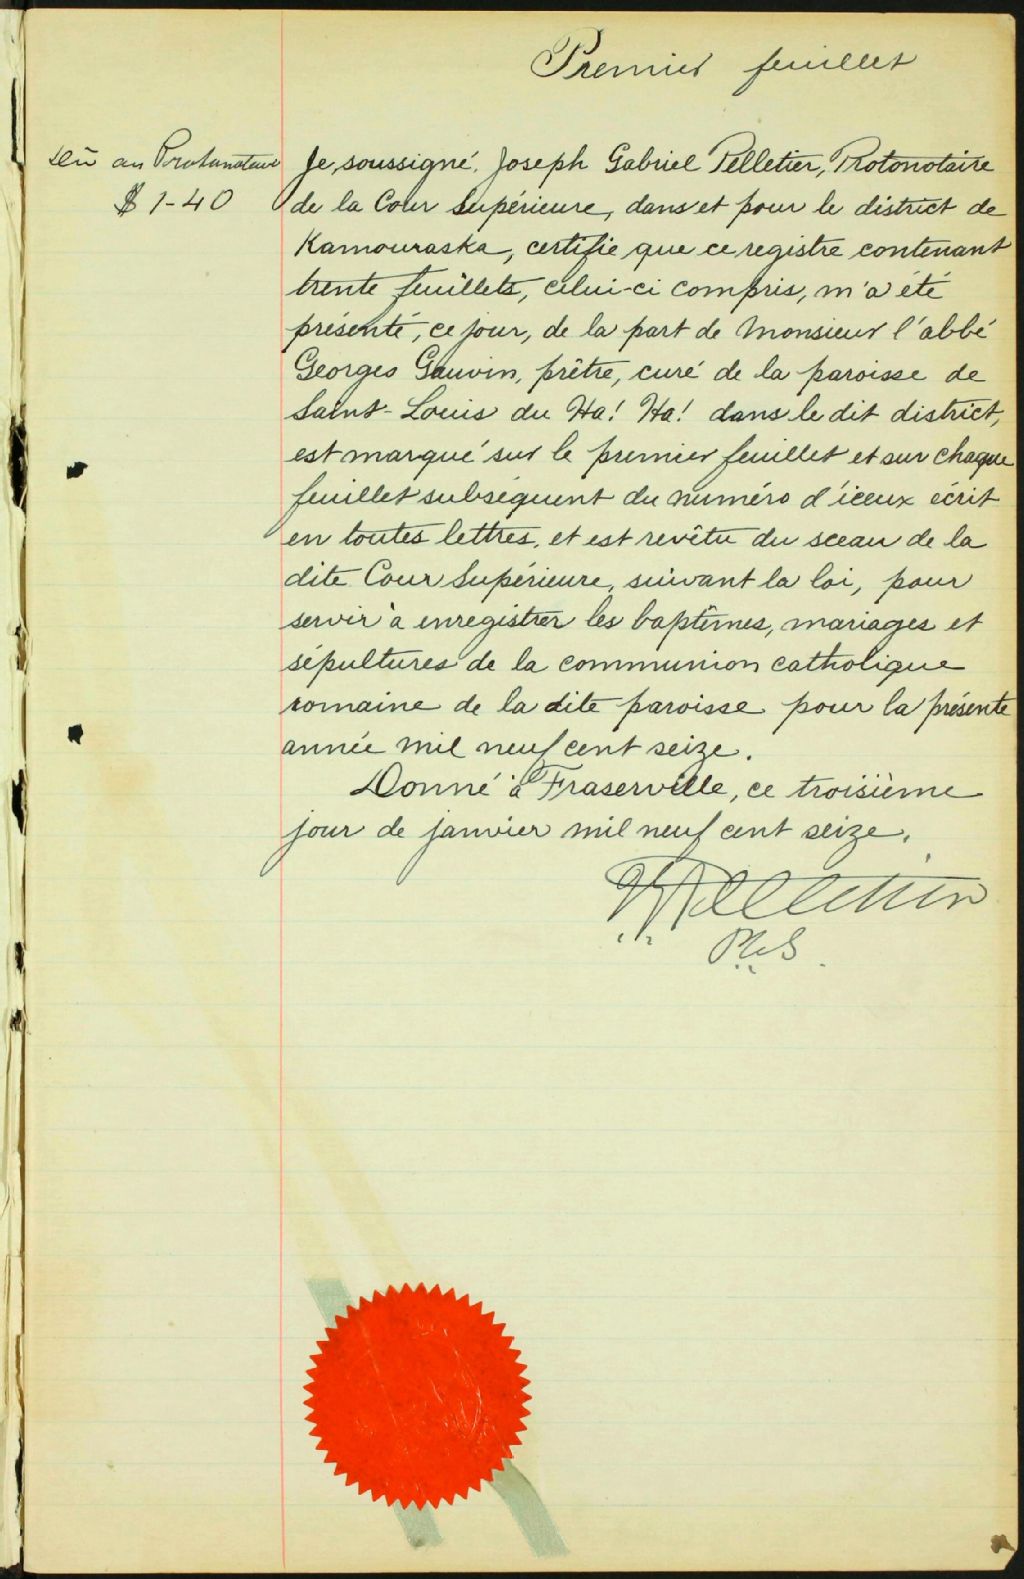 Premier feuillet
Dû au Protonotaire
$ 1-40
Je, soussigné, Joseph Gabriel Pelletier, Protonotaire
de la Cour Supérieure, dans et pour le district de
Kamouraska, certifie que ce registre contenant
trente feuillets, celui-ci compris, m'a été
présenté, ce jour, de la part de Monsieur l'abbé
Georges Gauvin, prêtre, curé de la paroisse de
Saint-Louis du Ha! Ha! dans le dit district,
est marqué sur le premier feuillet et sur chaque
feuillet subséquent du numéro d'iceux écrit
en toutes lettres, et est revêtu du sceau de la
dite Cour Supérieure, suivant la loi, pour
servir à enregistrer les baptêmes, mariages et
sépultures de la communion catholique
romaine de la dite paroisse pour la présente
année mil neuf cent seize.
Donné à Fraserville, ce troisième
jour de janvier mil neuf cent seize.
Pelletier